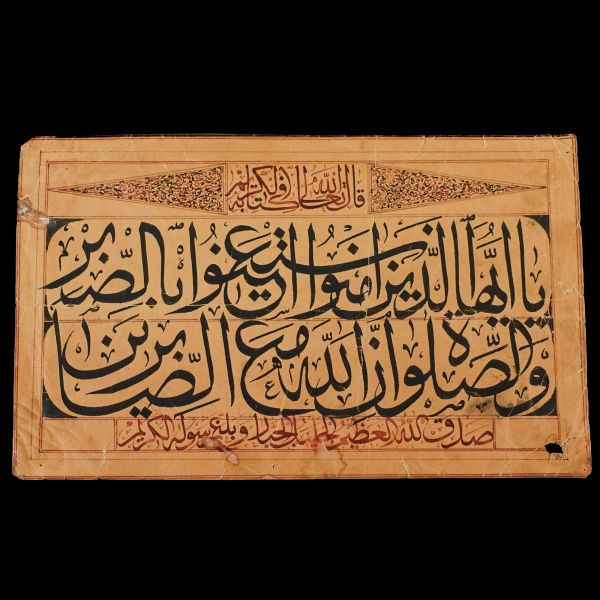 قال الله تعالى في كتابه الكريم
يا ايها الذين امنوا استعينوا بالصبر
والصلوة ان الله مع الصابرين
صدق الله العظيم الجبار وبلغ رسوله الكريم